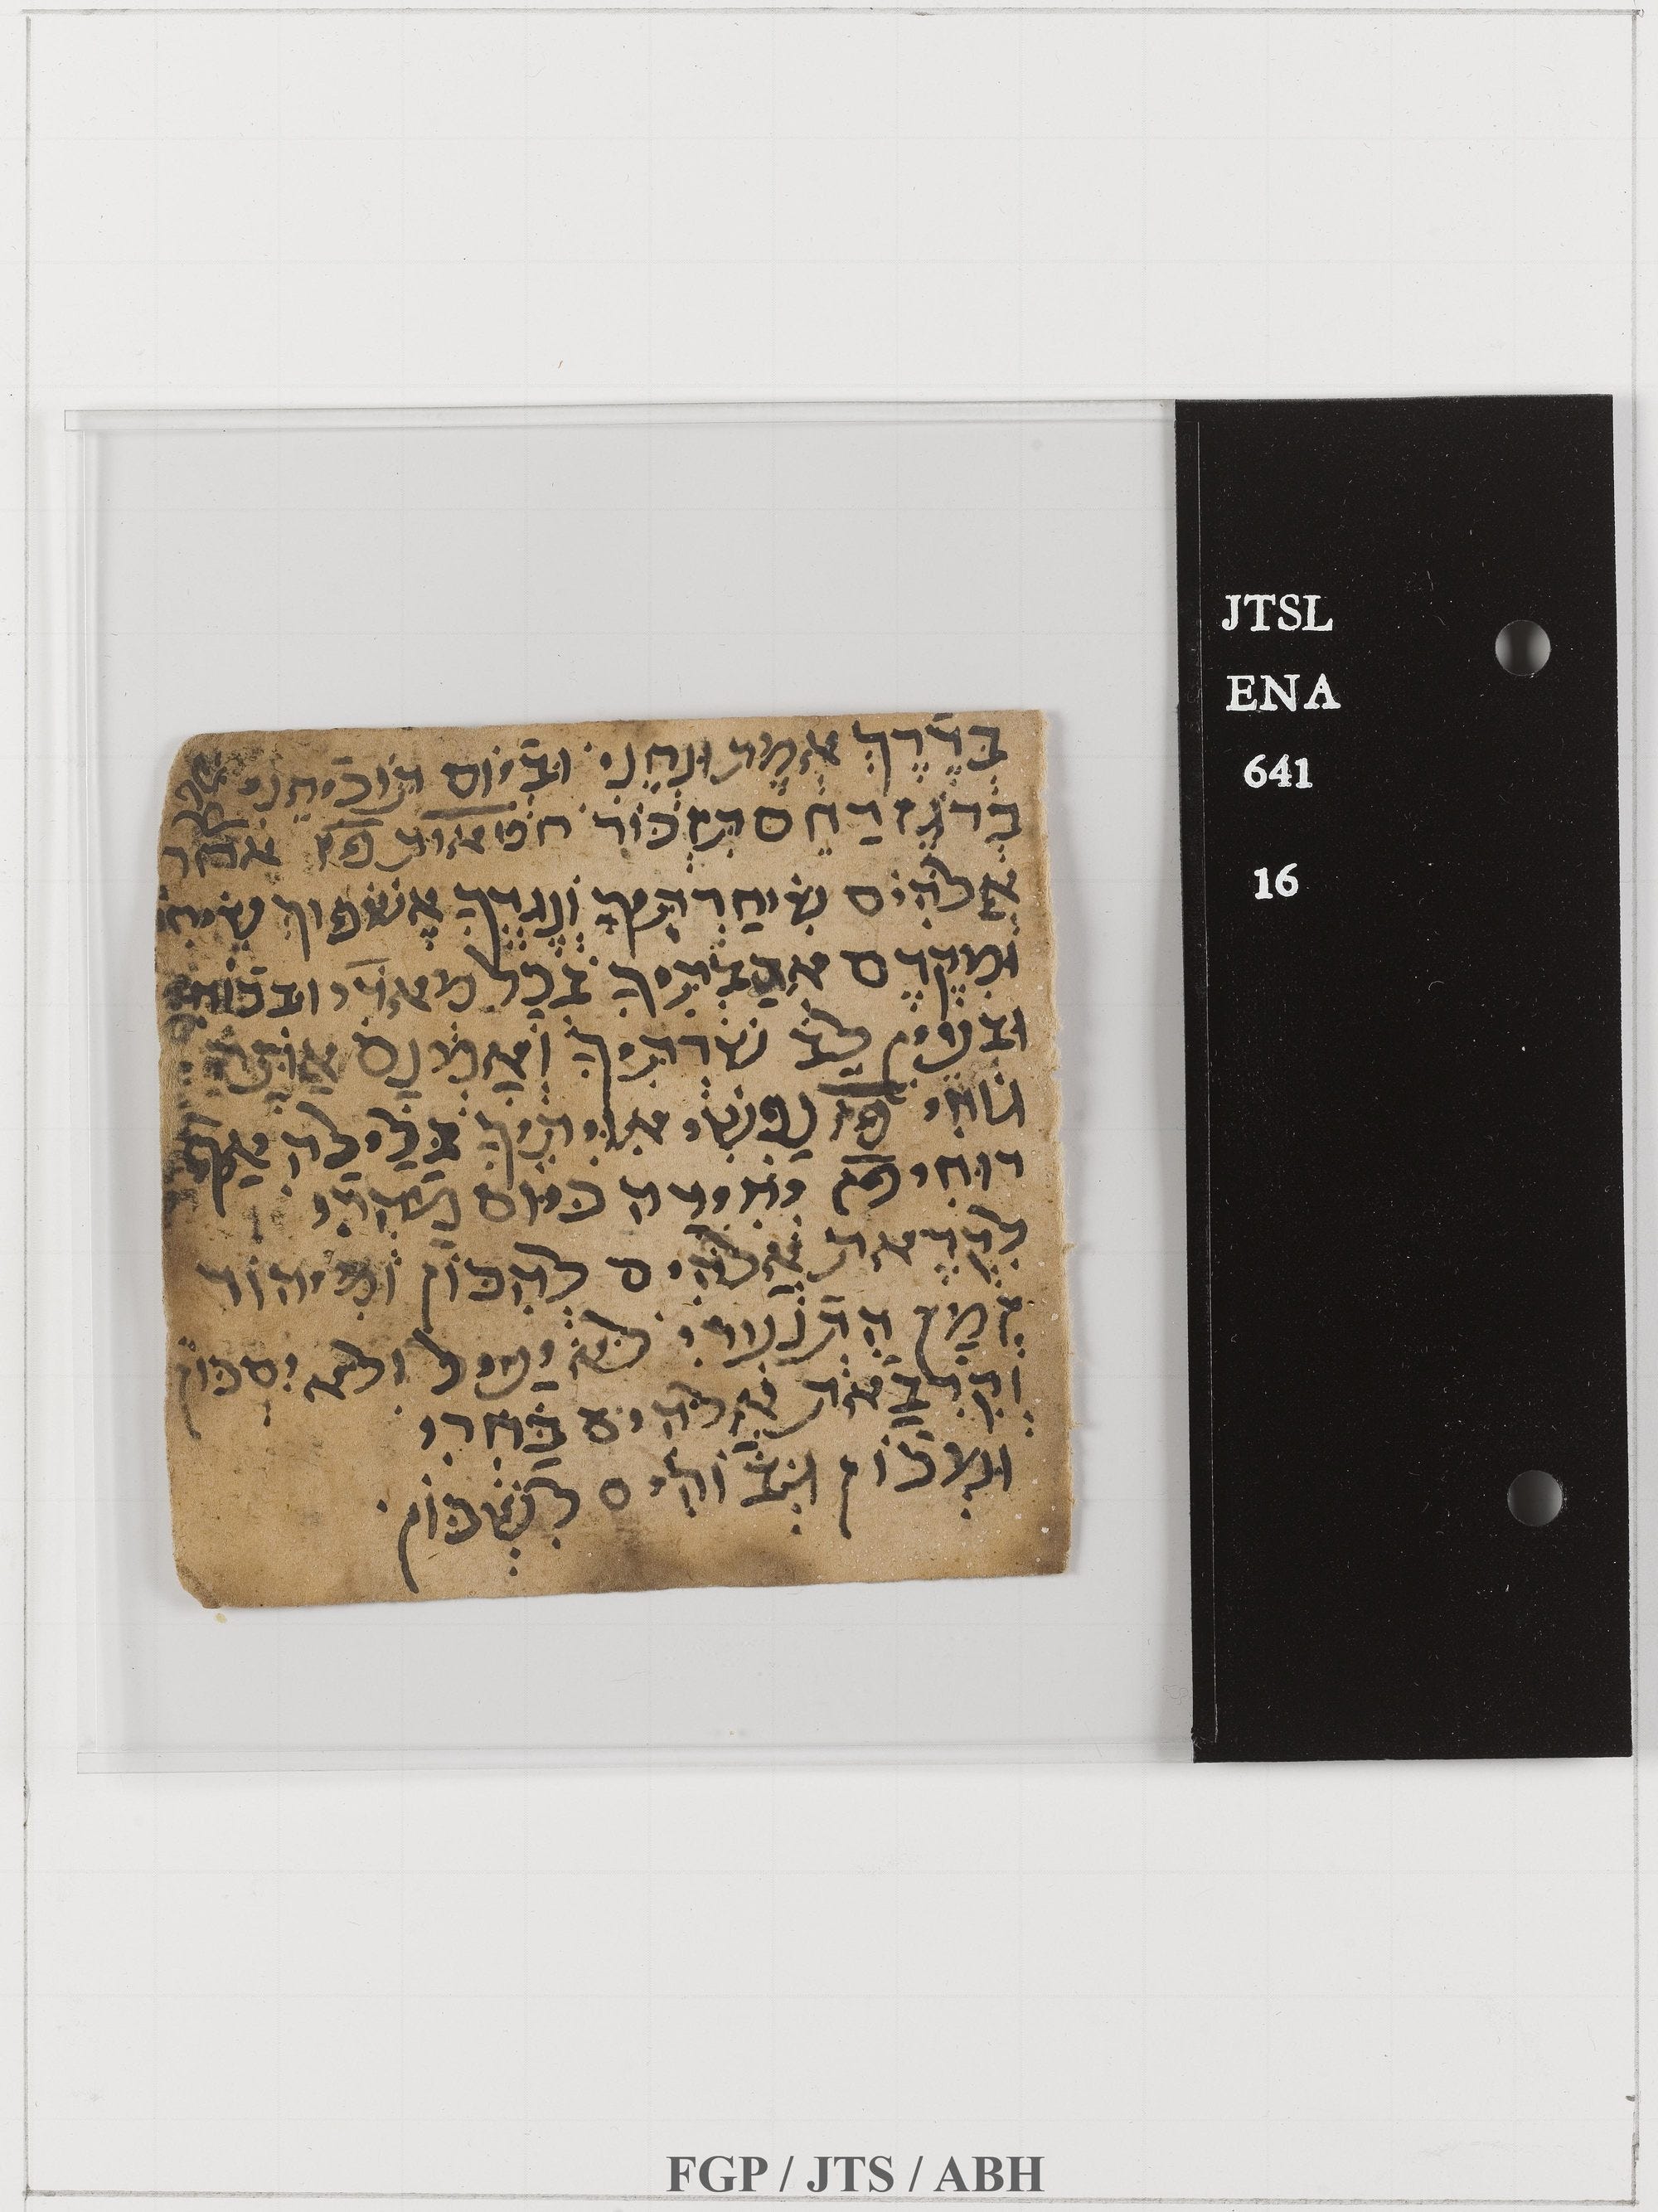 בְּדֶרֶךְ אֱמֶת וּנְחֵנִי וּבְיוֹם תּוֹכִיחֵנִי
בְּרֹגֶז רַחֵם תִּזְכּוֹר חטאות פז אחר
אֱלֹהִים שִׁיחַרְתִּיךָ וְנֶגְדְּךָ אֶשְׁפּוֹךְ שִׂיחִי
וּמִקֶּדֶם אֲהַבְתִּיךָ בְּכָל מאדי ובכוחי
וּבְעֵין לֵב שַׁרְתִּיךָ וְאָמְנָם אַתָּה
גוחי פז נַפְשִׁי אִוִּיתִיךָ בַּלַּיְלָה אַף
רוּחִי פז יחידה כיום תִּטְהֲרִי
לִקְרַאת אֱלֹהִים לְהִכּוֹן
זְמַן הִתְנַעֲרִי לֹא יַעִיל ולא יסכון
וְקִרְבַת אֱלֹהִים בַּחֲרִי
וּמָכוֹן לִשְׁכּוֹן
JTSL
ENA
641
16
FGP / JTS / ABH